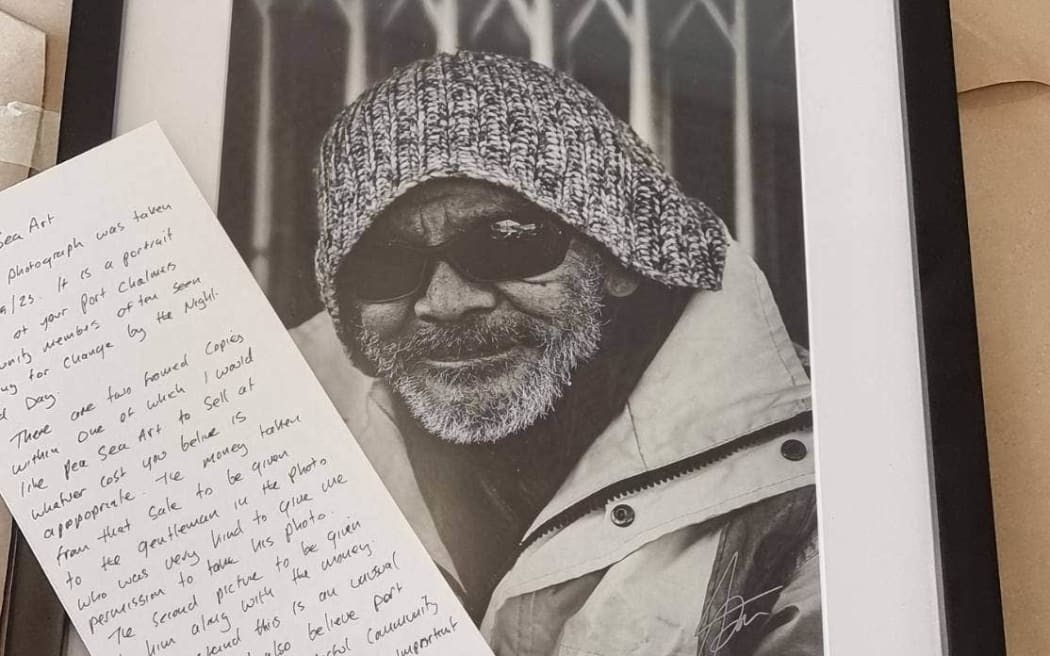 Sea Art
photograph was taken
/23. It is a portrait
of your Port Chalmers
unity members often seen
for change by the Night.
Day.
There are two framed copies
within one of which I would
like Pea Sea Art to sell at
whatver cost you belive is
appropriate. The money taken
from that sale to be given
to the gentleman in the photo
who was very kind to give me
permission to take his photo.
The second picture to be given
him along with the money.
this is an unusual
also believe port
community
important